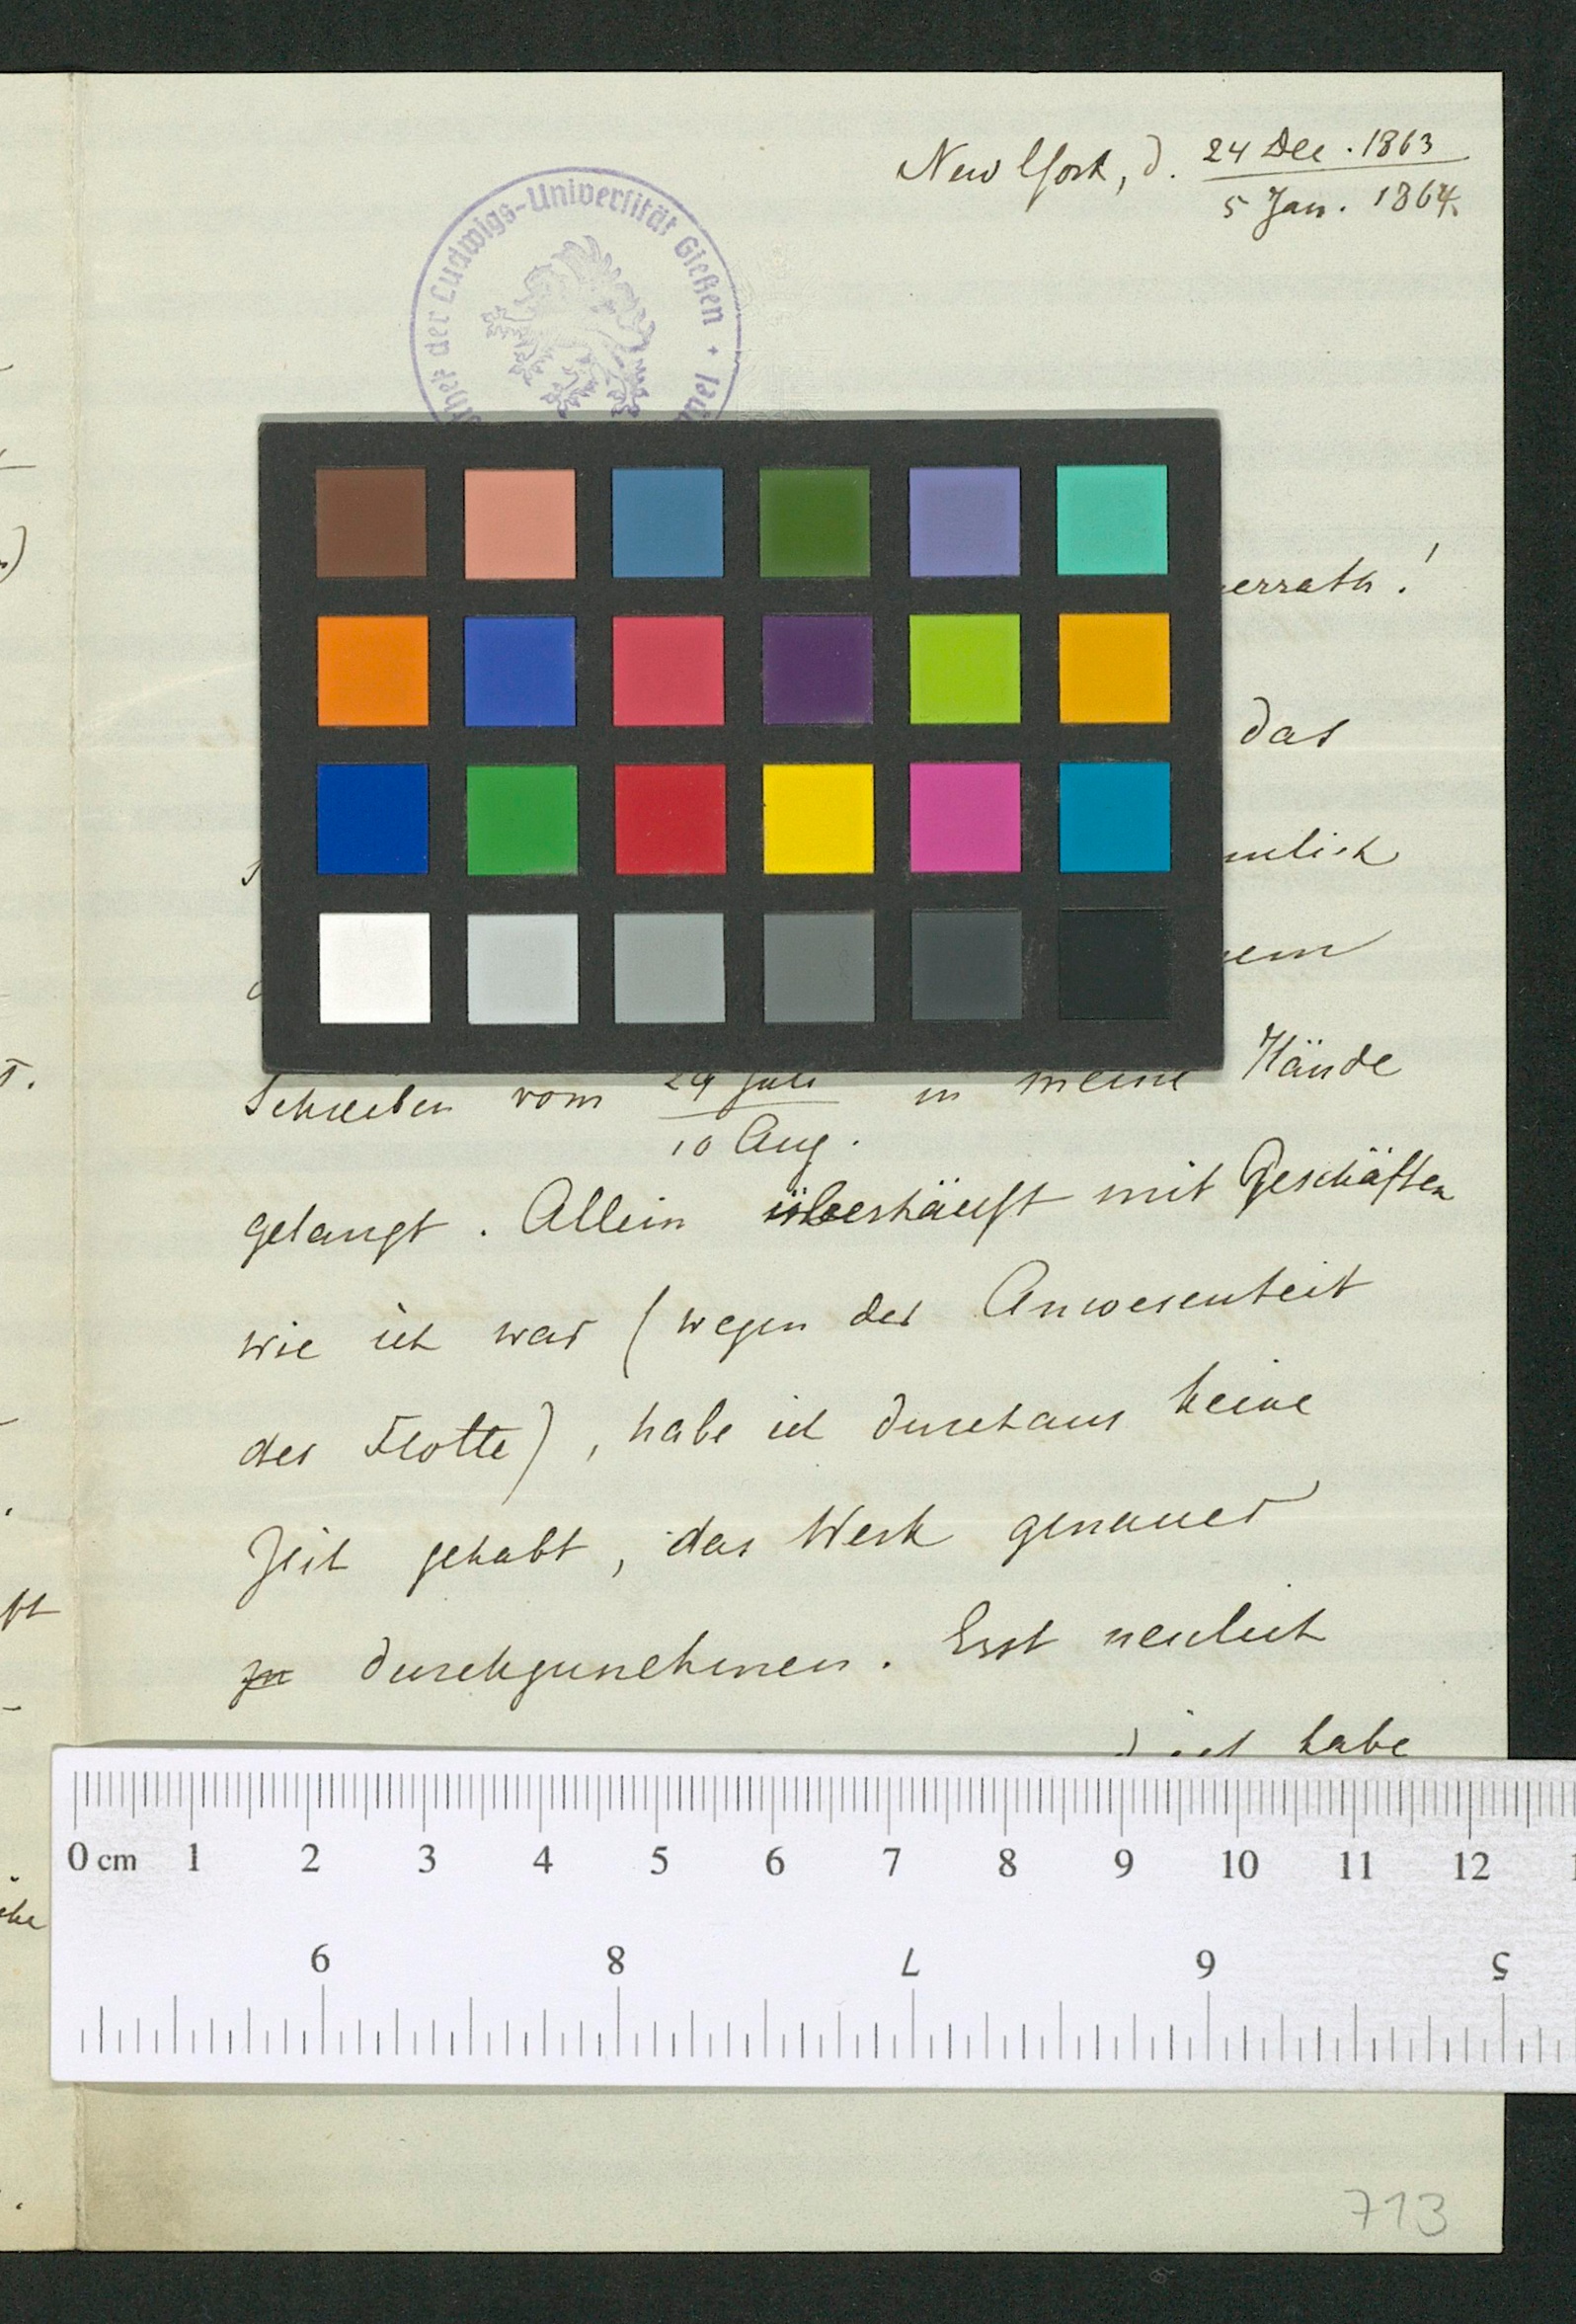 New York, d. 24 Dec. 1863
5 Jan. 1864.
der Ludwigs-Universität Gießen
errath!
das
mlich
em
Schreiben vom 29 Juli in meine Hände
10 Aug.
gelangt. Allein überhäuft mit Geschäften
wie ich war (wegen der Anwesenheit
der Flotte), habe ich durchaus keine
Zeit gehabt, das Werk genauer
zu durchzunehmen. Erst neulich
ich habe
0 cm 1 2 3 4 5 6 7 8 9 10 11 12
9 8 7 6 5
713